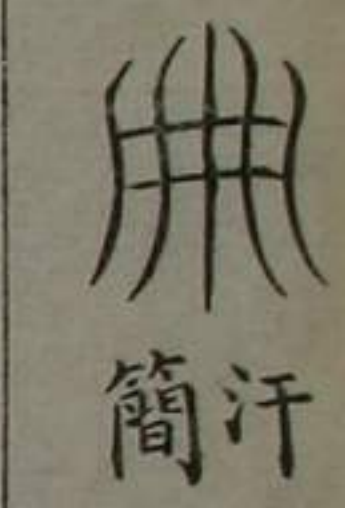 冊
汗簡